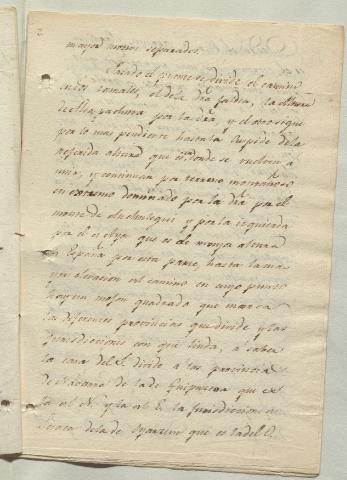 2
mayor menos separados.
Pasado el puente se divide el camino
en dos ramales, el de la dra faldea, la altura
de por la dra, y el otro sigue
por lo mas pendiente hasta la cuspide de la
referida altura que es donde se vuelven á
unir, y continuan por terreno montañoso
en extremo dominado por la dra por el
monte de y por la izquierda
por el de que es de mayor altura
de España por esta parte, hasta la ma-
yor elevacion del camino en cuyo punto
hay un mojon quadrado que marca
las diferentes provincias que divide y las
Jurisdicciones con que linda, á saber
la cara del S. divide a las provincias
de Navarra de la de Guipuzcoa que es
la al N. y la al E. la Jurisdiccion de
Lesaca de la de Oyarzun que es la del O.